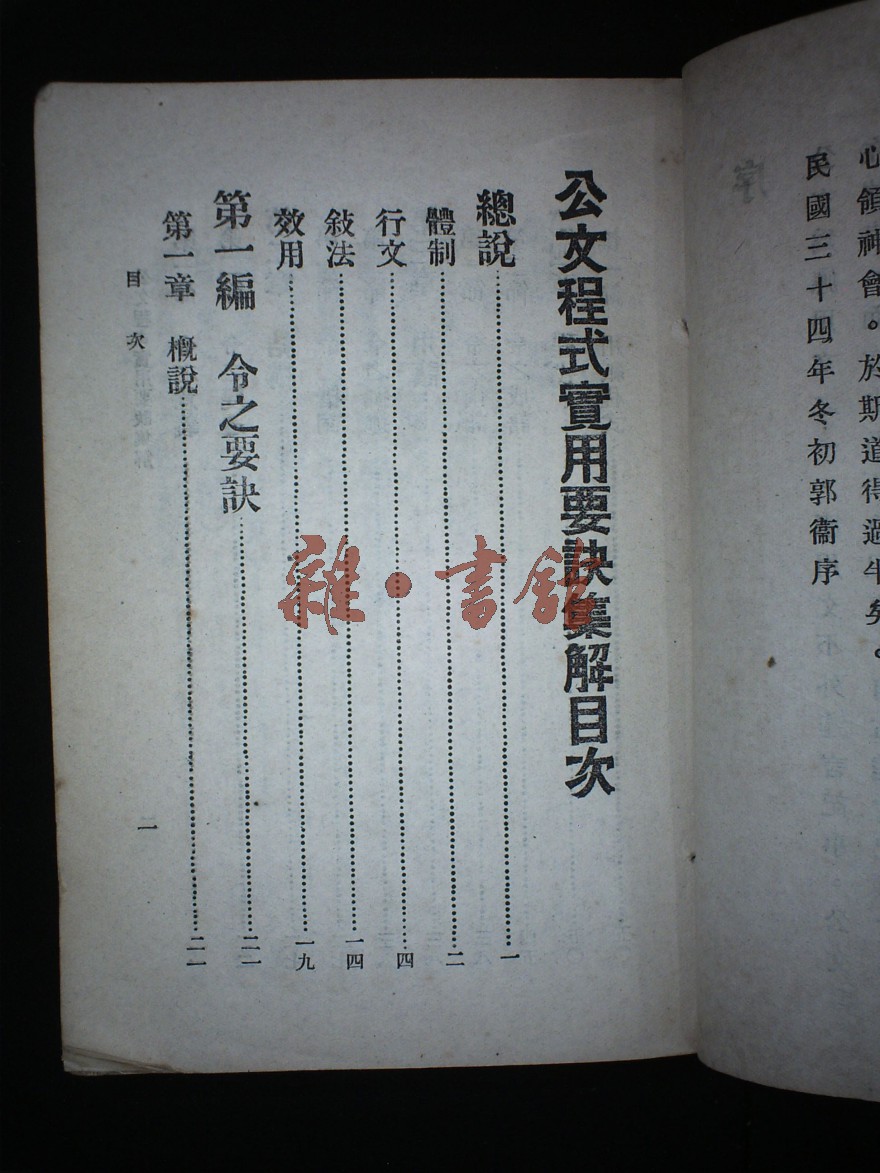 心領神會。於斯道得過半矣。
民國三十四年冬初郭衞序
公文程式實用要訣集解目次
總說……一
體制……二
行文……四
敍法……一四
效用……一九
第一編 令之要訣……二一
第一章 概說……二一
目次
一
雜·書館